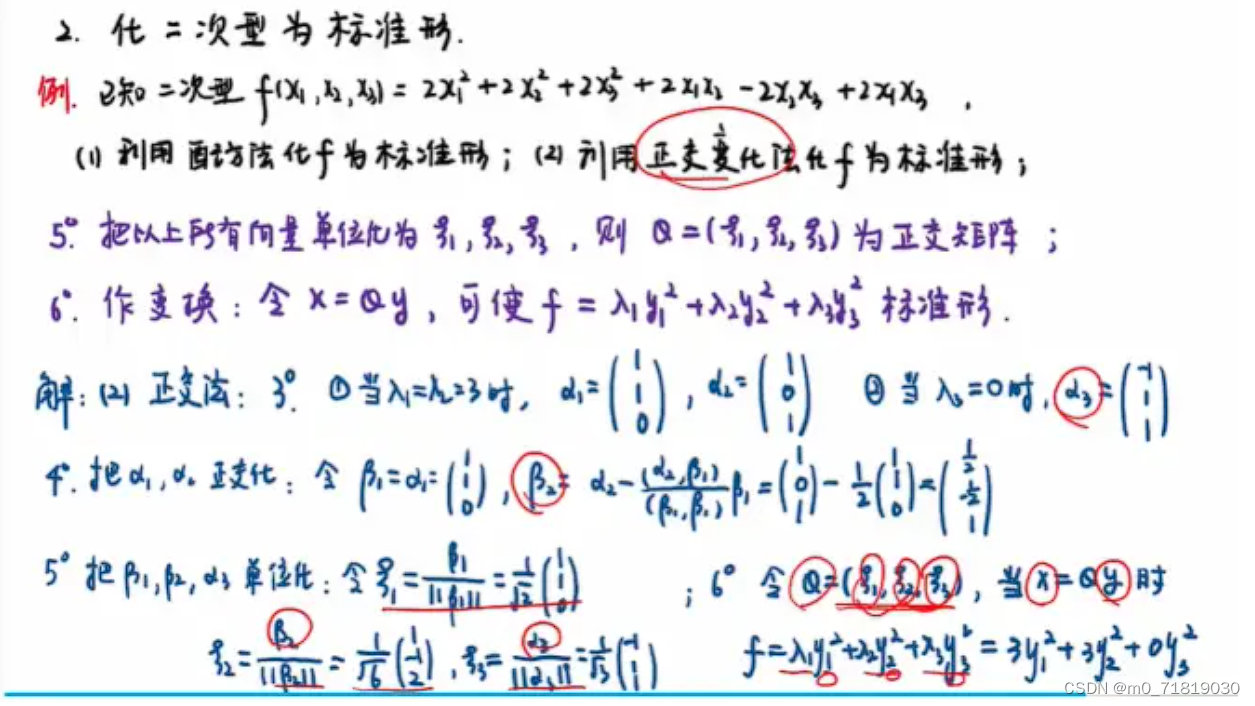 2. 化二次型为标准形.
例. 已知二次型 f(x₁,x₂,x₃) = 2x₁²+2x₂²+2x₃²+2x₁x₂-2x₂x₃+2x₁x₃ ,
(1) 利用配方法化f为标准形; (2) 利用正交变化法化f为标准形;
5°. 把以上所有向量单位化为 ξ₁, ξ₂, ξ₃ , 则 Q=(ξ₁, ξ₂, ξ₃) 为正交矩阵 ;
6°. 作变换: 令 x=Qy, 可使 f = λ₁y₁²+λ₂y₂²+λ₃y₃² 标准形.
解: (2) 正交法: 3°. ①当λ₁=λ₂=3时, α₁=(1 1 0), α₂=(1 0 1) ② 当 λ₃=0时, α₃=(-1 1 1)
4°. 把α₁,α₂ 正交化: 令 β₁=α₁=(1 1 0), β₂= α₂-(α₂,β₁)/(β₁,β₁)β₁=(1 0 1)-1/2(1 1 0)=(1/2 -1/2 1)
5° 把β₁,β₂,α₃ 单位化: 令 ξ₁=β₁/||β₁||=1/√2(1 1 0) ; 6° 令 Q=(ξ₁,ξ₂,ξ₃), 当x=Qy时
ξ₂=β₂/||β₂||=1/√6(1 -1 2), ξ₃=α₃/||α₃||=1/√3(-1 1 1) f=λ₁y₁²+λ₂y₂²+λ₃y₃²=3y₁²+3y₂²+0y₃²
CSDN @m0_71819030